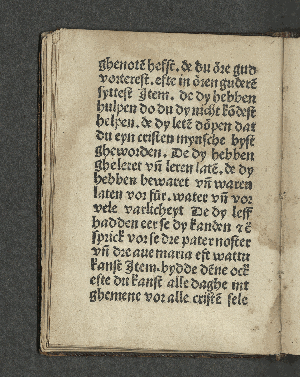 ghenotē hefft. de du ōre gud
vorterest. efte in ōren guderē
syttest Item. de dy hebben
hulpen do du dy nicht kōdest
helpen. de dy letē dōpen dat
du eyn cristen mynsche byst
gheworden. De dy hebben
gheleret vn̄ leren latē. de dy
hebben bewaret vn̄ waren
laten vor fūr. water vn̄ vor
vele varlicheyt De dy leff
hadden eer se dy kanden ⁊ č
sprick vor se dre pater noster
vn̄ dre aue maria eft wattu
kanst Item. bydde dēne ock
efte du kanst alle daghe int
ghemene vor alle cristē sele